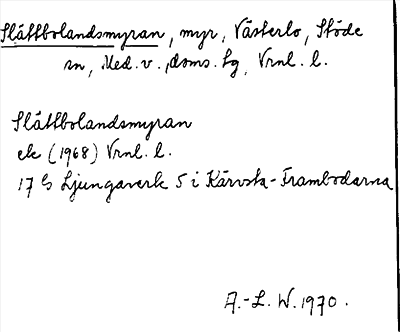 Slåttbolandsmyran, myr, Västerlo, Stöde
sn, Med. v. doms. tg, Vrnl. l.
Slåttbolandsmyran
ek (1968) Vrnl. l.
17 G Ljungaverk 5 i Kärvsta-Frambodarna
A.-L. W. 1970.